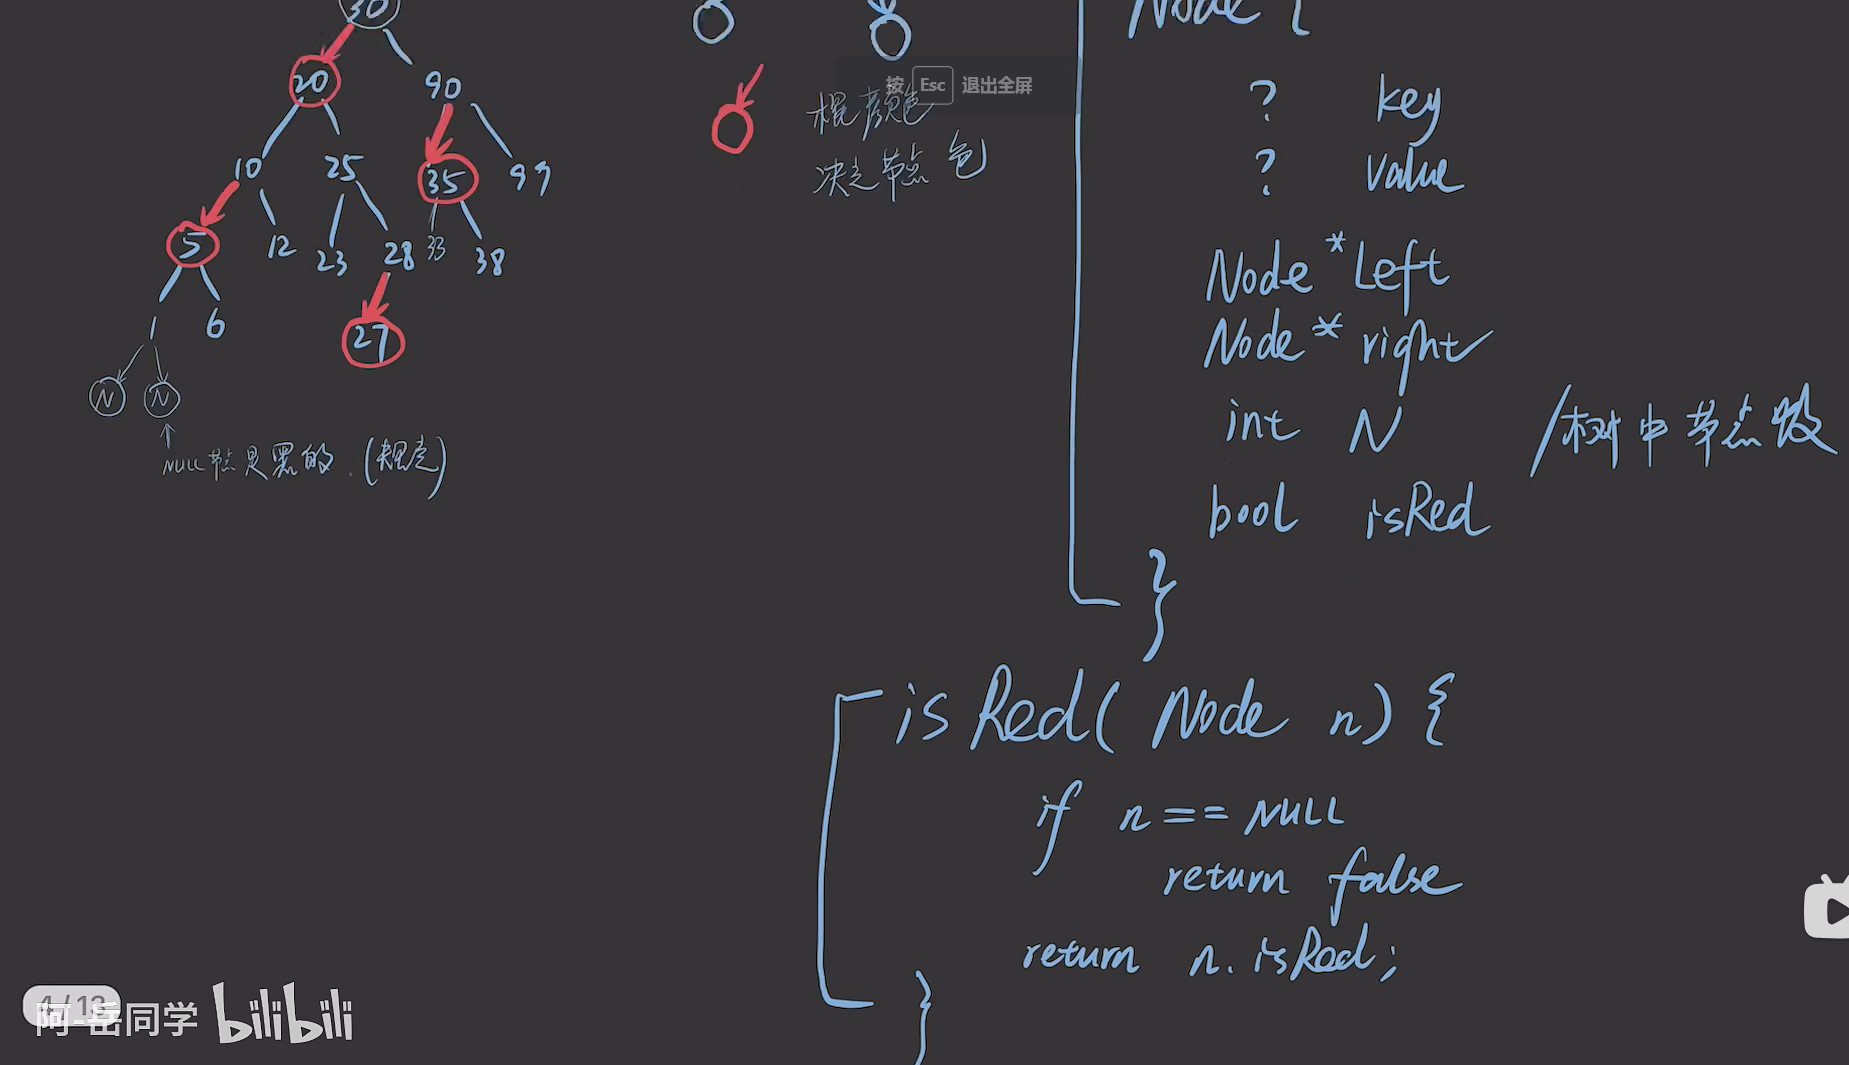 30
20
90
10
25
35
99
5
12
23
28
33
38
1
6
27
N
N
NULL节点是黑的.(规定)
棍颜色
决定节点色
按 Esc 退出全屏
Node {
? key
? value
Node *Left
Node * right
int N /树中节点数
bool isRed
}
isRed( Node n) {
if n == NULL
return false
return n.isRed;
}
4 / 13
阿-岳同学 bilibili